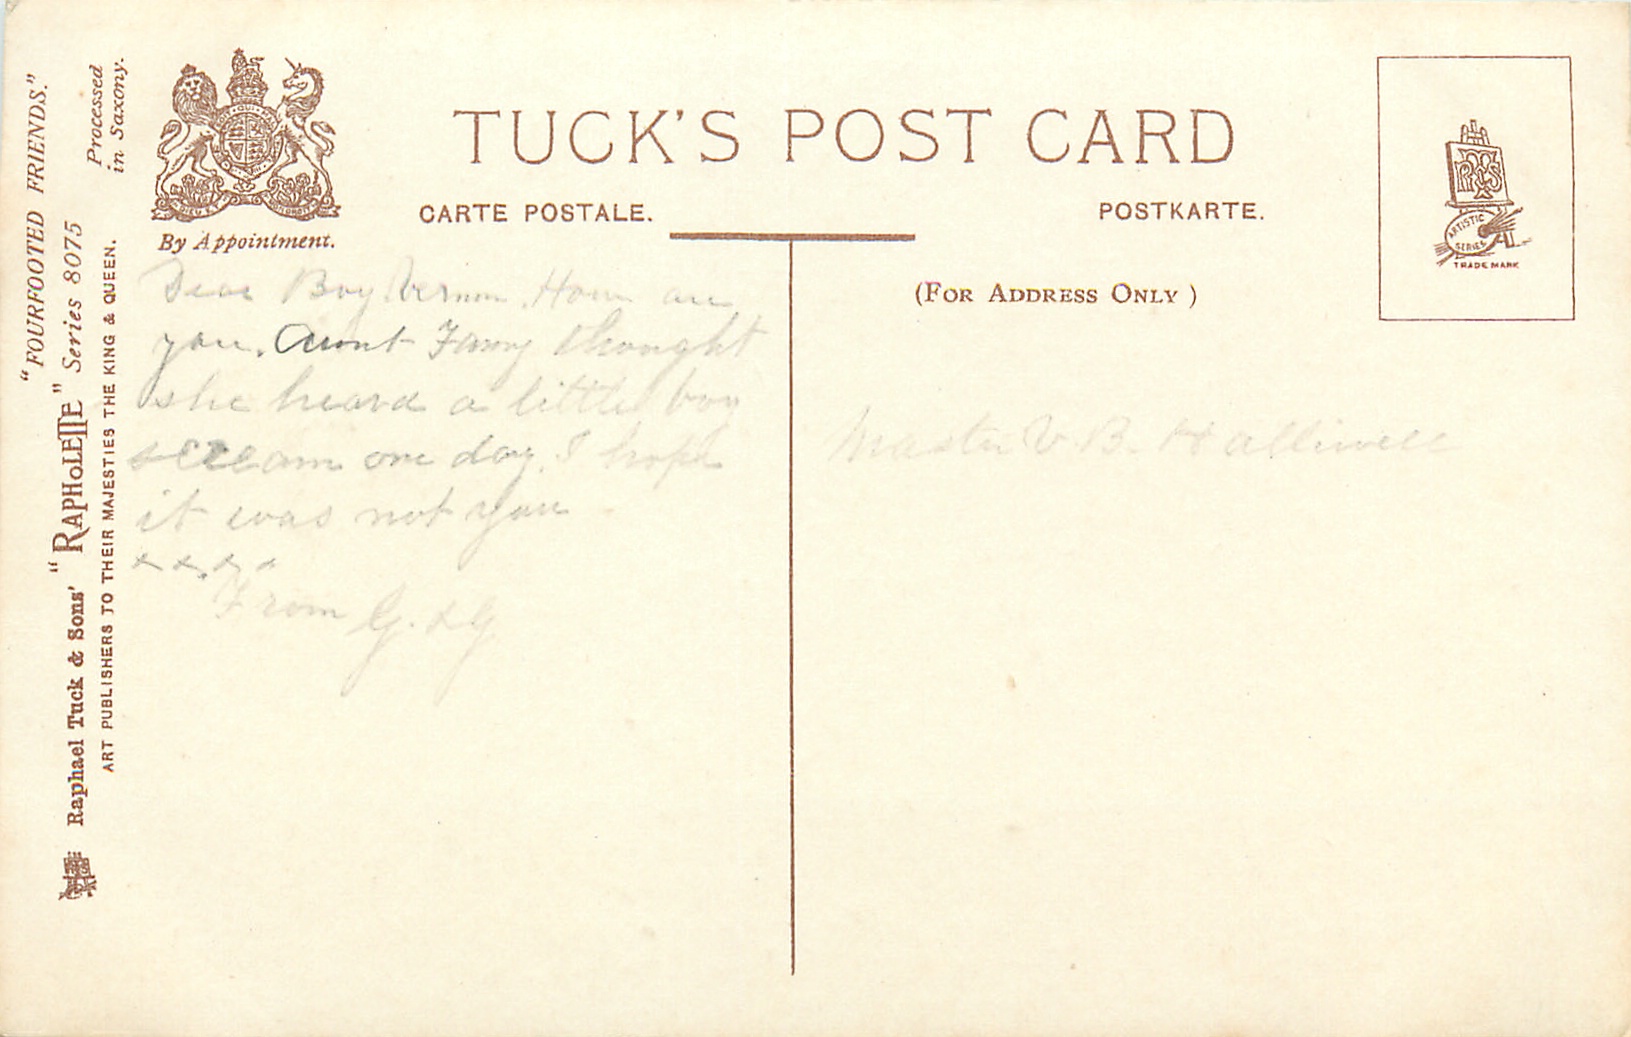 "FOURFOOTED FRIENDS."
Raphael Tuck & Sons' "RAPHOLETTE" Series 8075
Processed
in Saxony.
ART PUBLISHERS TO THEIR MAJESTIES THE KING & QUEEN.
By Appointment.
TUCK'S POST CARD
CARTE POSTALE.
POSTKARTE.
(FOR ADDRESS ONLY)
ARTISTIC
SERIES
TRADE MARK
Dear Boy Vernon. How are
you. Aunt Fanny thought
she heard a little boy
scream one day. I hope
it was not you
x x x x
From G. & G
Master V. B. Halliwell